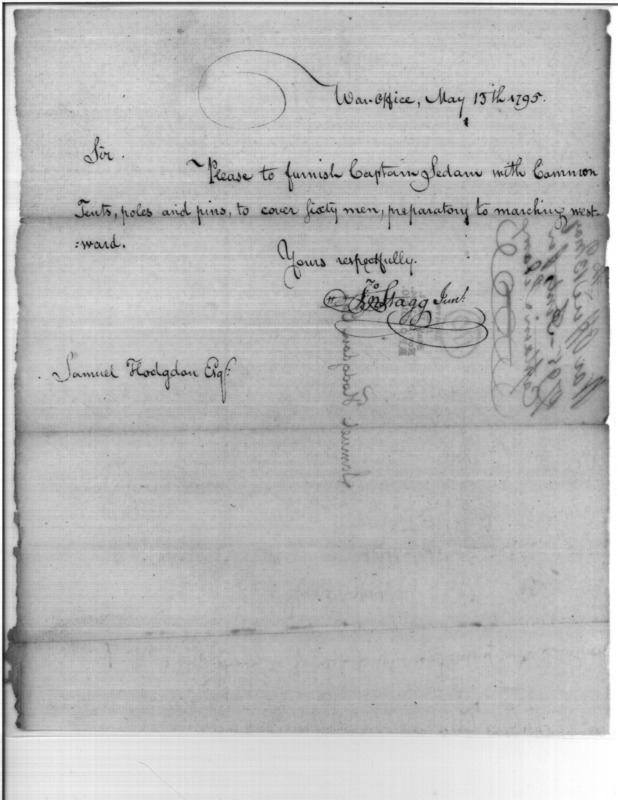 War-Office, May 13th 1795.
Sir.
Please to furnish Captain Sedam with Common
Tents, poles and pins, to cover sixty men, preparatory to marching west-
:ward.
Yours respectfully.
Jno Stagg Junr.
Samuel Hodgdon Esqr.